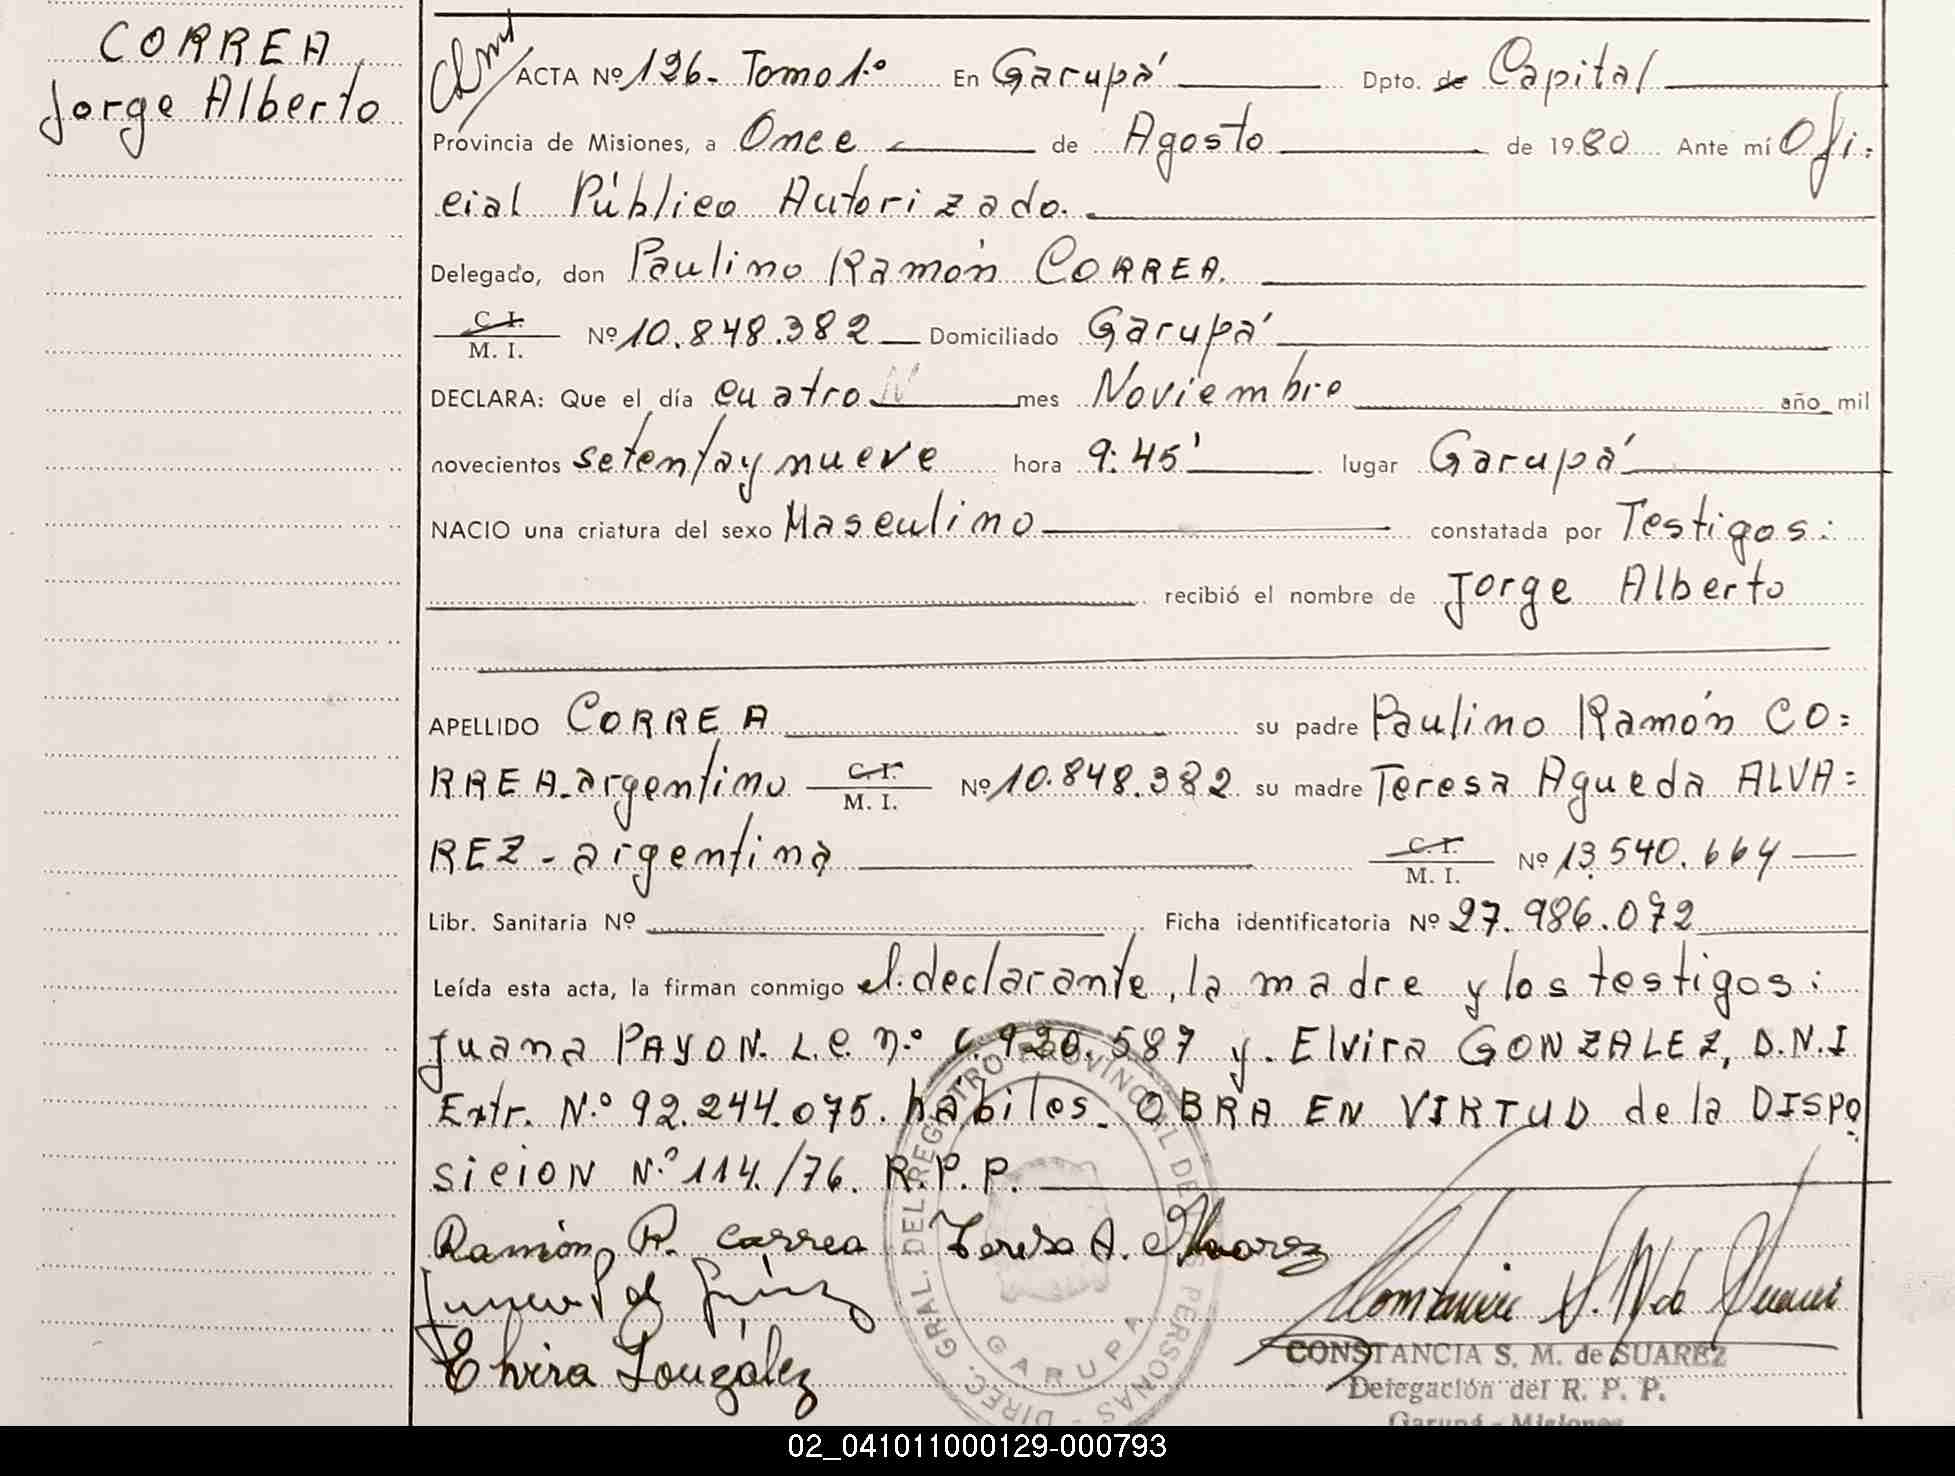 CORREA
Jorge Alberto
ACTA Nº 126- Tomo 1.º En Garupá Dpto. de Capital
Provincia de Misiones, a Once de Agosto de 1980 Ante mí Ofi=
cial Público Autorizado.
Delegado, don Paulino Ramón CORREA.
C. I.
M. I. Nº 10.848.382 Domiciliado Garupá
DECLARA: Que el día cuatro N mes Noviembre año mil
novecientos setenta y nueve hora 9:45' lugar Garupá
NACIO una criatura del sexo Masculino constatada por Testigos:
recibió el nombre de Jorge Alberto
APELLIDO CORREA su padre Paulino Ramón CO=
RREA-argentino C. I. M. I. Nº 10.848.382 su madre Teresa Agueda ALVA=
REZ - argentina C. I. M. I. Nº 13.540.664
Libr. Sanitaria Nº Ficha identificatoria Nº 27.986.072
Leída esta acta, la firman conmigo el declarante, la madre y los testigos:
Juana PAYON. L.C. n.º 6.920.587 y. Elvira GONZALEZ, D.N.I
Extr. N.º 92.244.075. hábiles. OBRA EN VIRTUD de la DISPO
SICION N.º 114./76. R.P.P.
Ramón R. Correa Teresa A. Alvarez
Elvira González
DIREC. GRAL. DEL REGISTRO PROVINCIAL DE LAS PERSONAS -
GARUPA
CONSTANCIA S. M. de SUAREZ
Delegación del R. P. P.
Garupá - Misiones
02_041011000129-000793